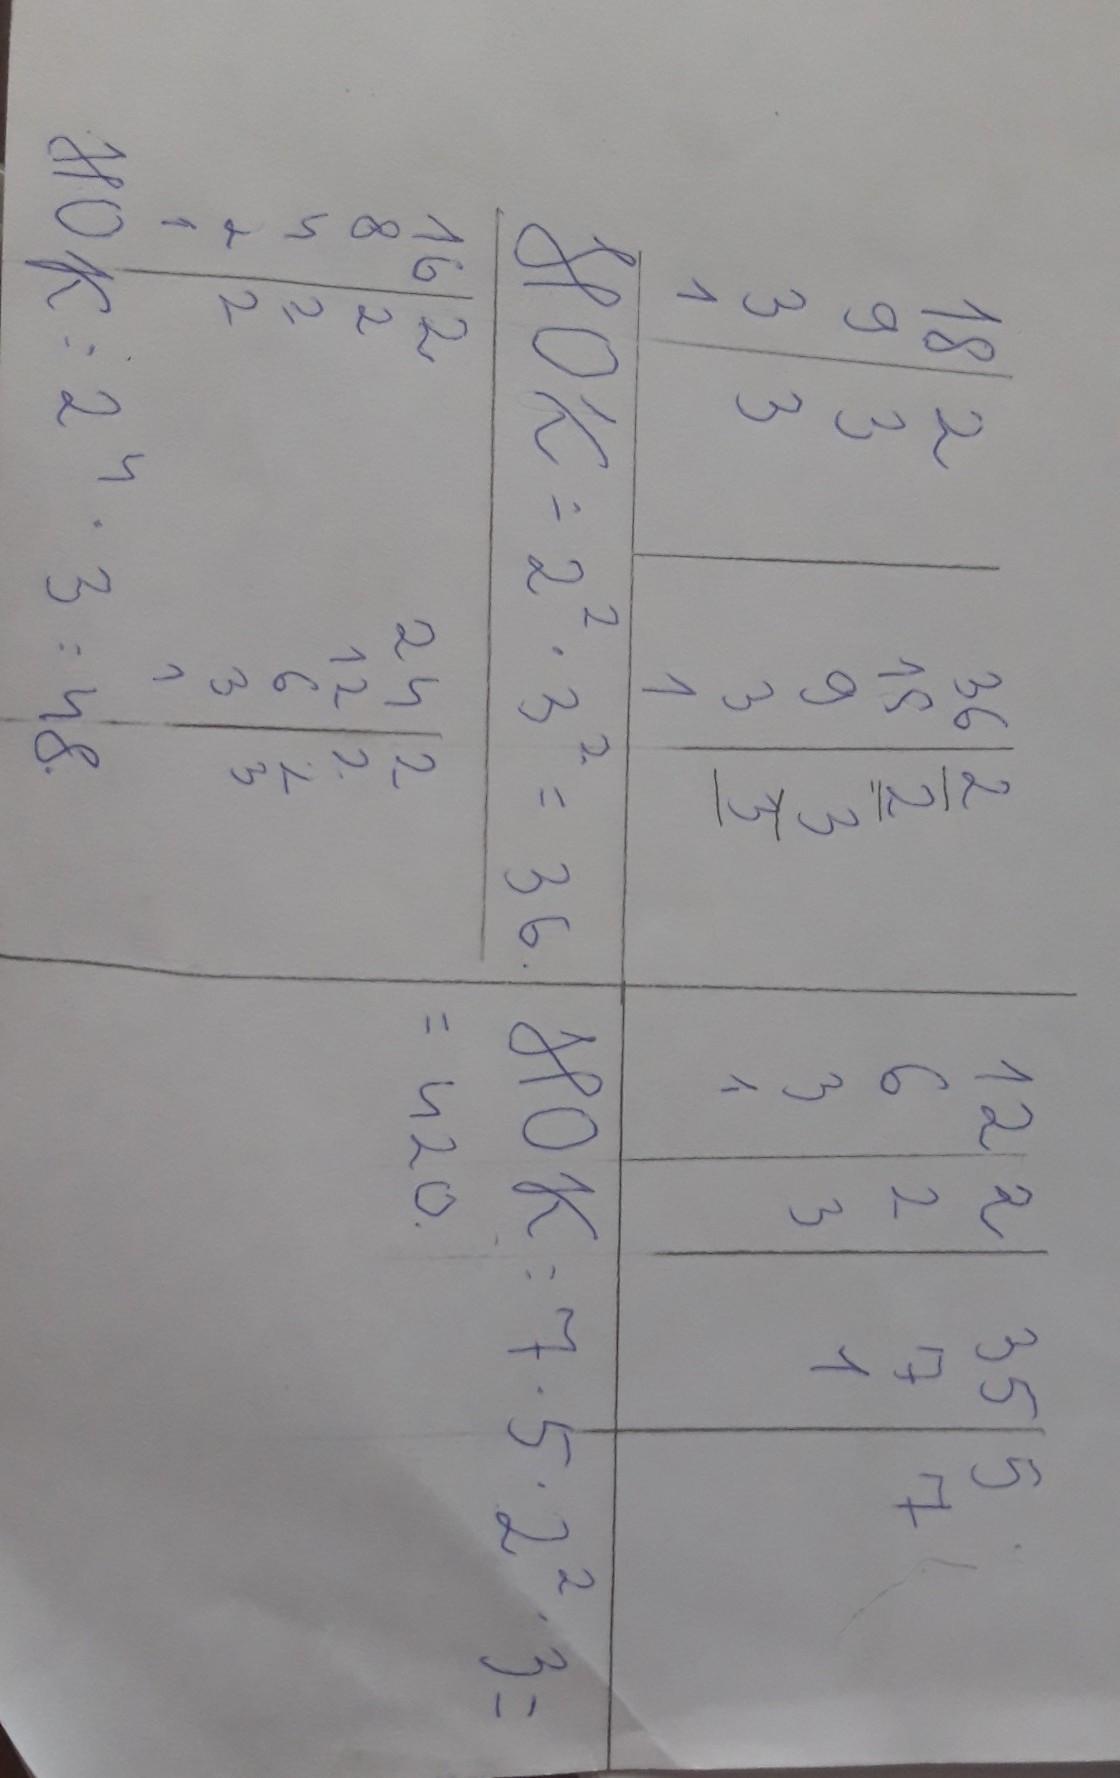 18 | 2
9 | 3
3 | 3
1
36 | 2
18 | 2
9 | 3
3 | 3
1
НОК = 2² · 3² = 36.
12 | 2
6 | 2
3 | 3
1
35 | 5
7 | 7
1
НОК = 7 · 5 · 2² · 3 =
= 420.
16 | 2
8 | 2
4 | 2
2 | 2
1
24 | 2
12 | 2
6 | 2
3 | 3
1
НОК = 2⁴ · 3 = 48.